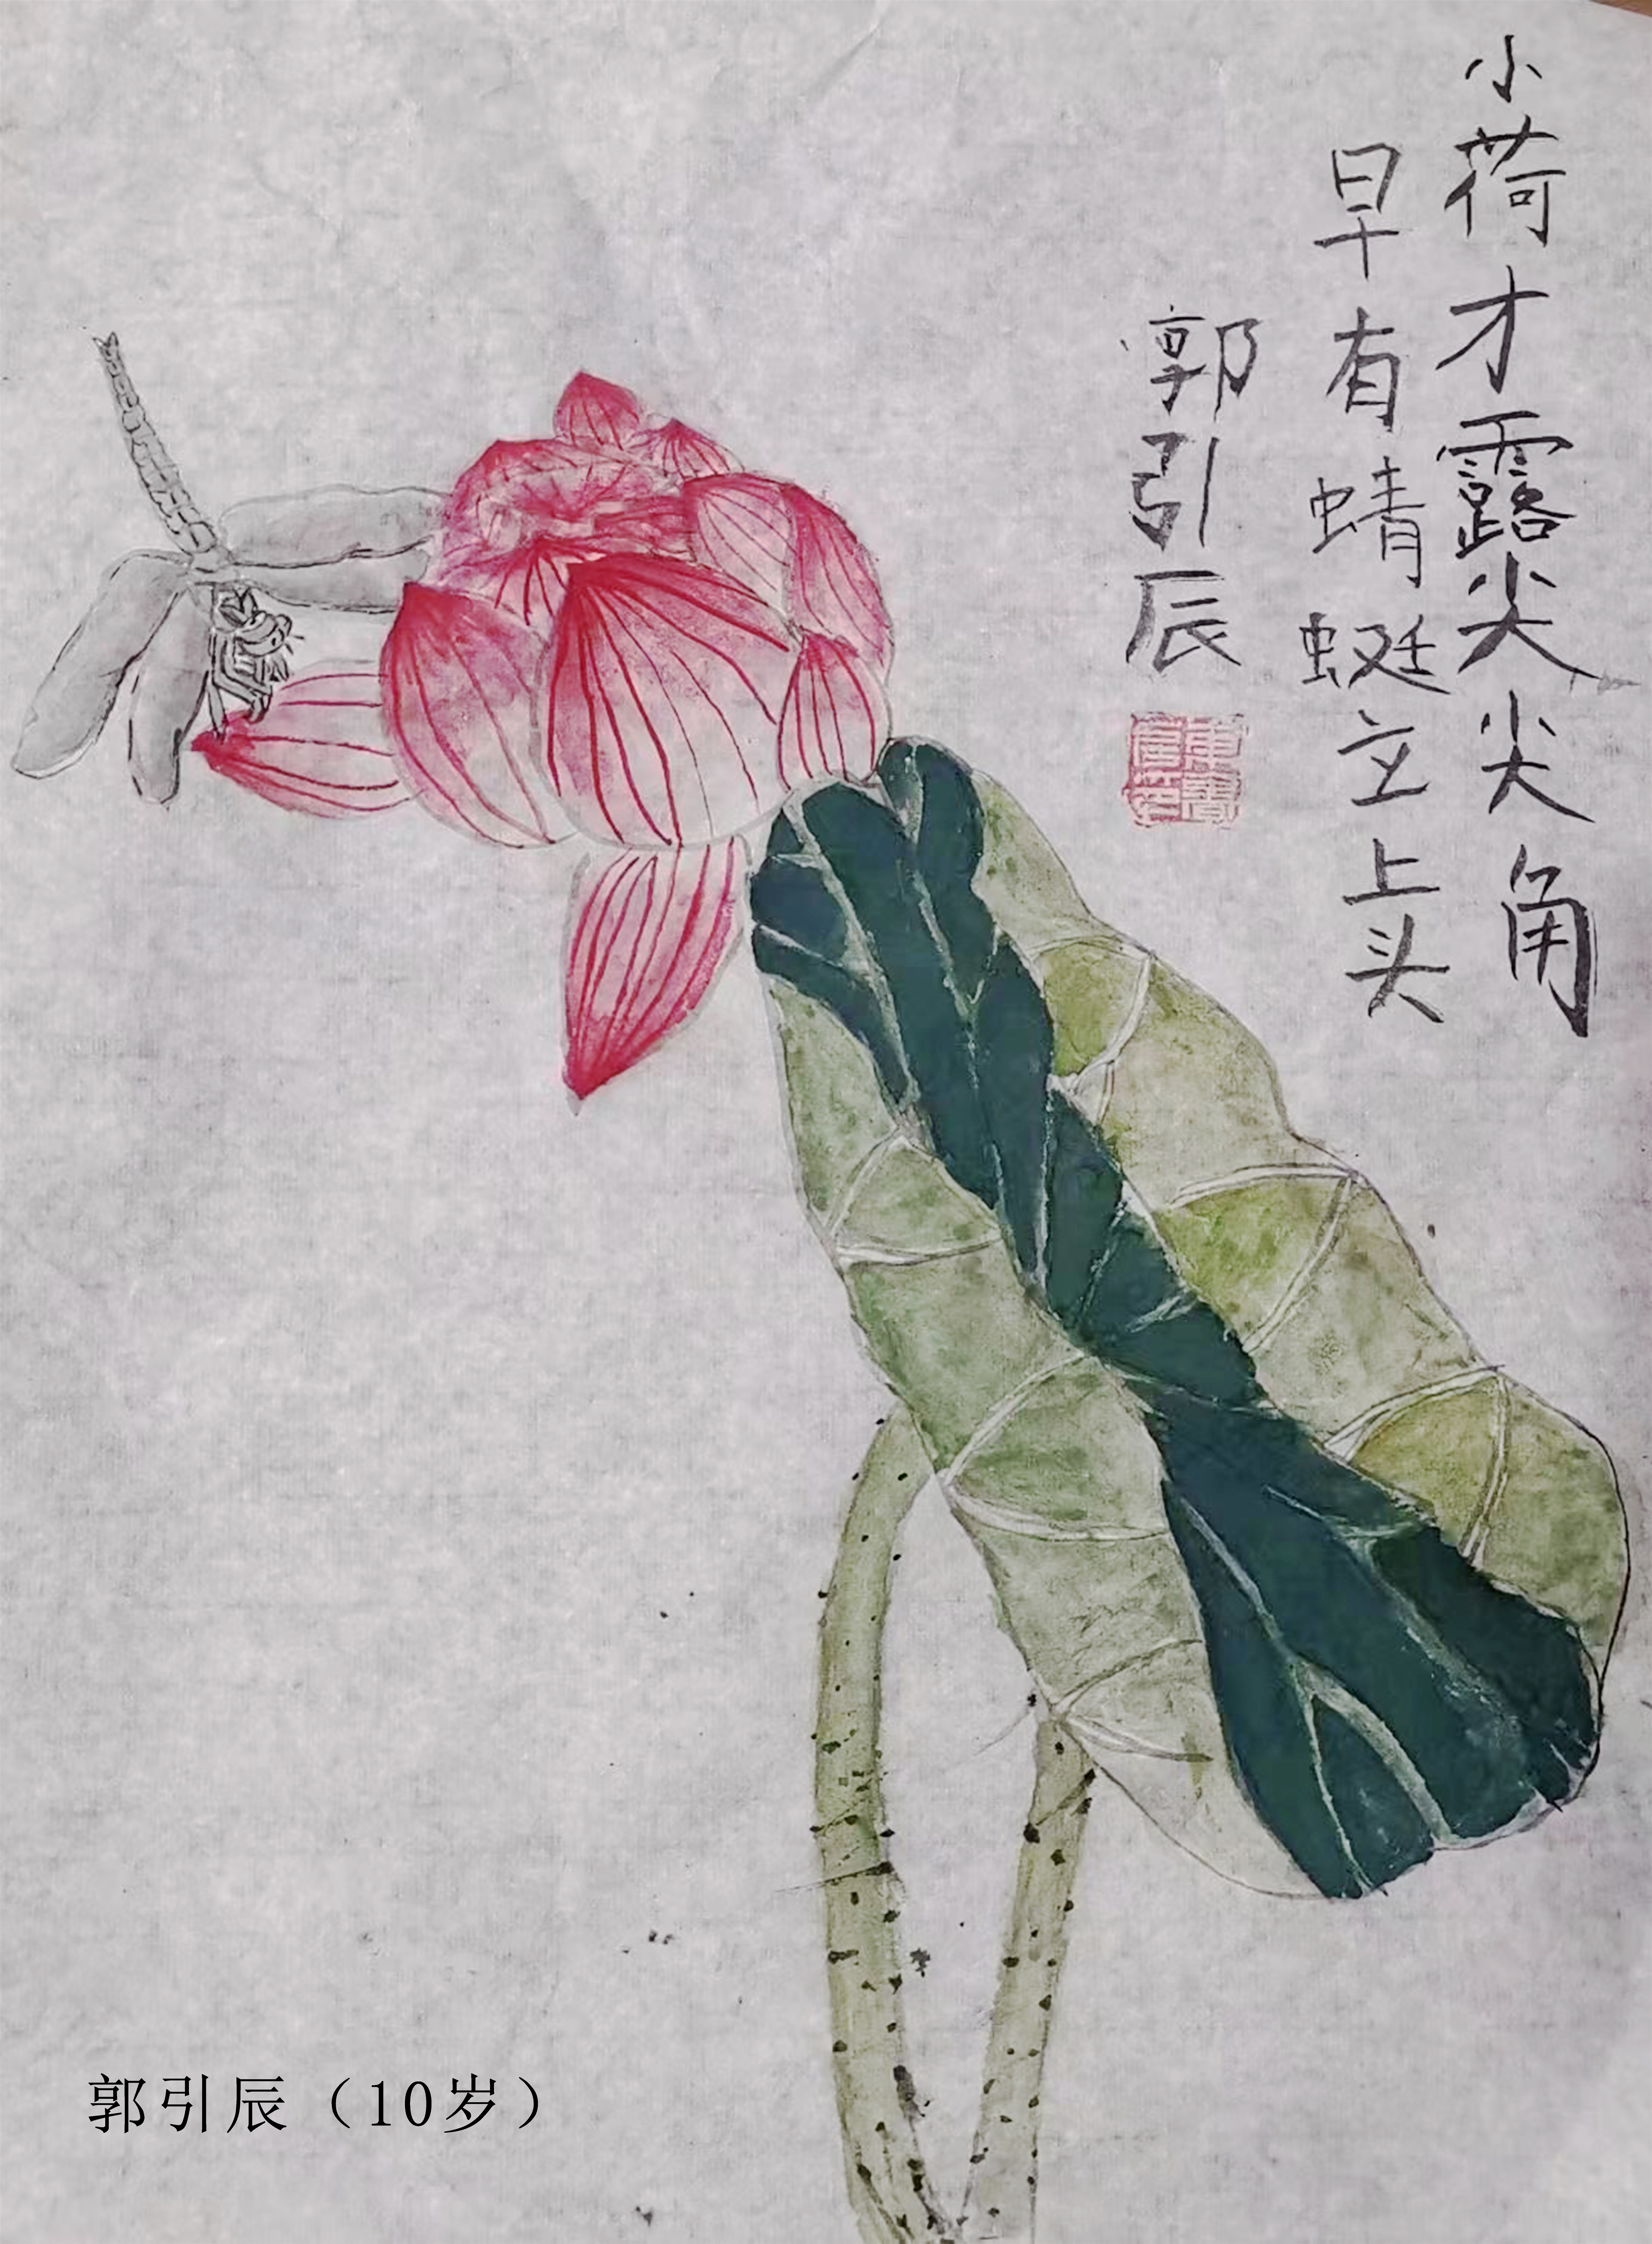 小荷才露尖尖角
早有蜻蜓立上头
郭引辰
郭引辰（10岁）